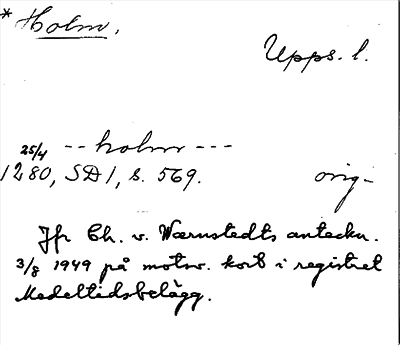 *Holm.
Upps. l.
25/4 -- holm ---
1280, SD 1, s. 569. orig-
Jfr Ch. v. Wærnstedts anteckn.
3/8 1949 på motsv. kort i registret
Medeltidsbelägg.